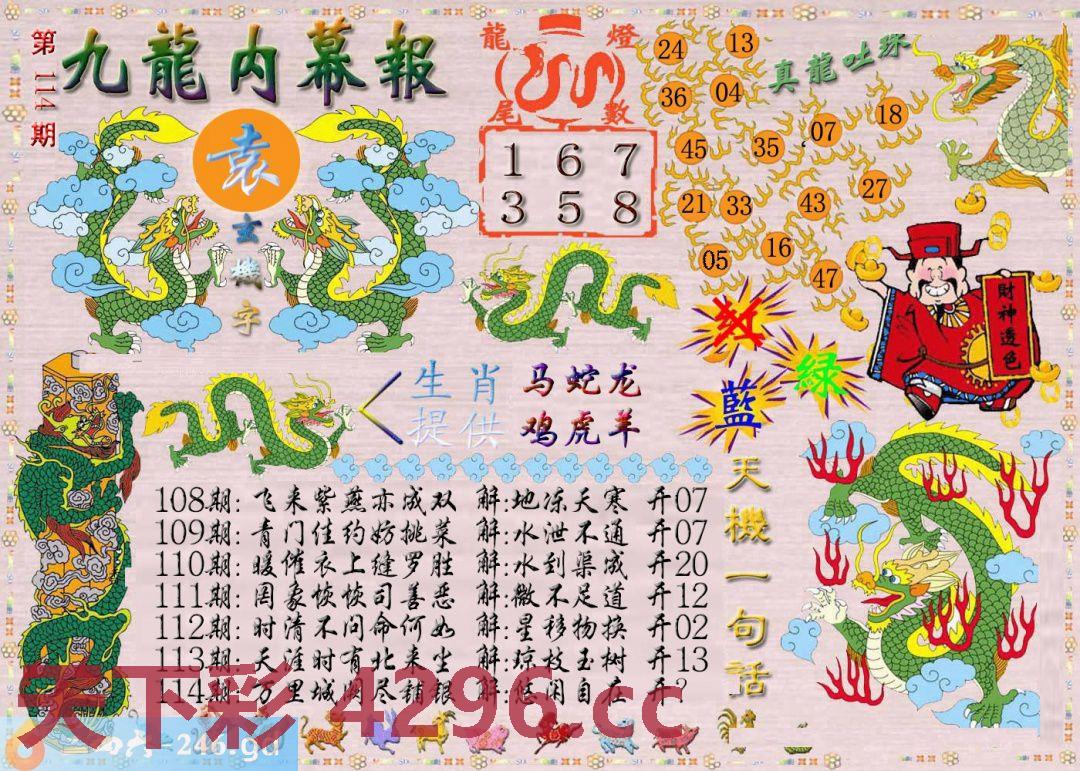 第114期
九龍内幕報
袁
玄機字
龍燈
尾數
1 6 7
3 5 8
24 13
36 04
真龍吐珠
45 35 07 18
21 33 43 27
05 16 47
財神透色
红
綠
藍
生肖 马蛇龙
提供 鸡虎羊
天機一句話
108期: 飞来紫燕亦成双 解:地冻天寒 开07
109期: 青门佳约妨挑菜 解:水泄不通 开07
110期: 暖催衣上缝罗胜 解:水到渠成 开20
111期: 罔象恢恢司善恶 解:微不足道 开12
112期: 时清不问命何如 解:星移物换 开02
113期: 天涯时有北来尘 解:琼枝玉树 开13
114期: 万里城阙尽铺银 解:悠闲自在 开?
天下彩 4296.cc
=246.gd